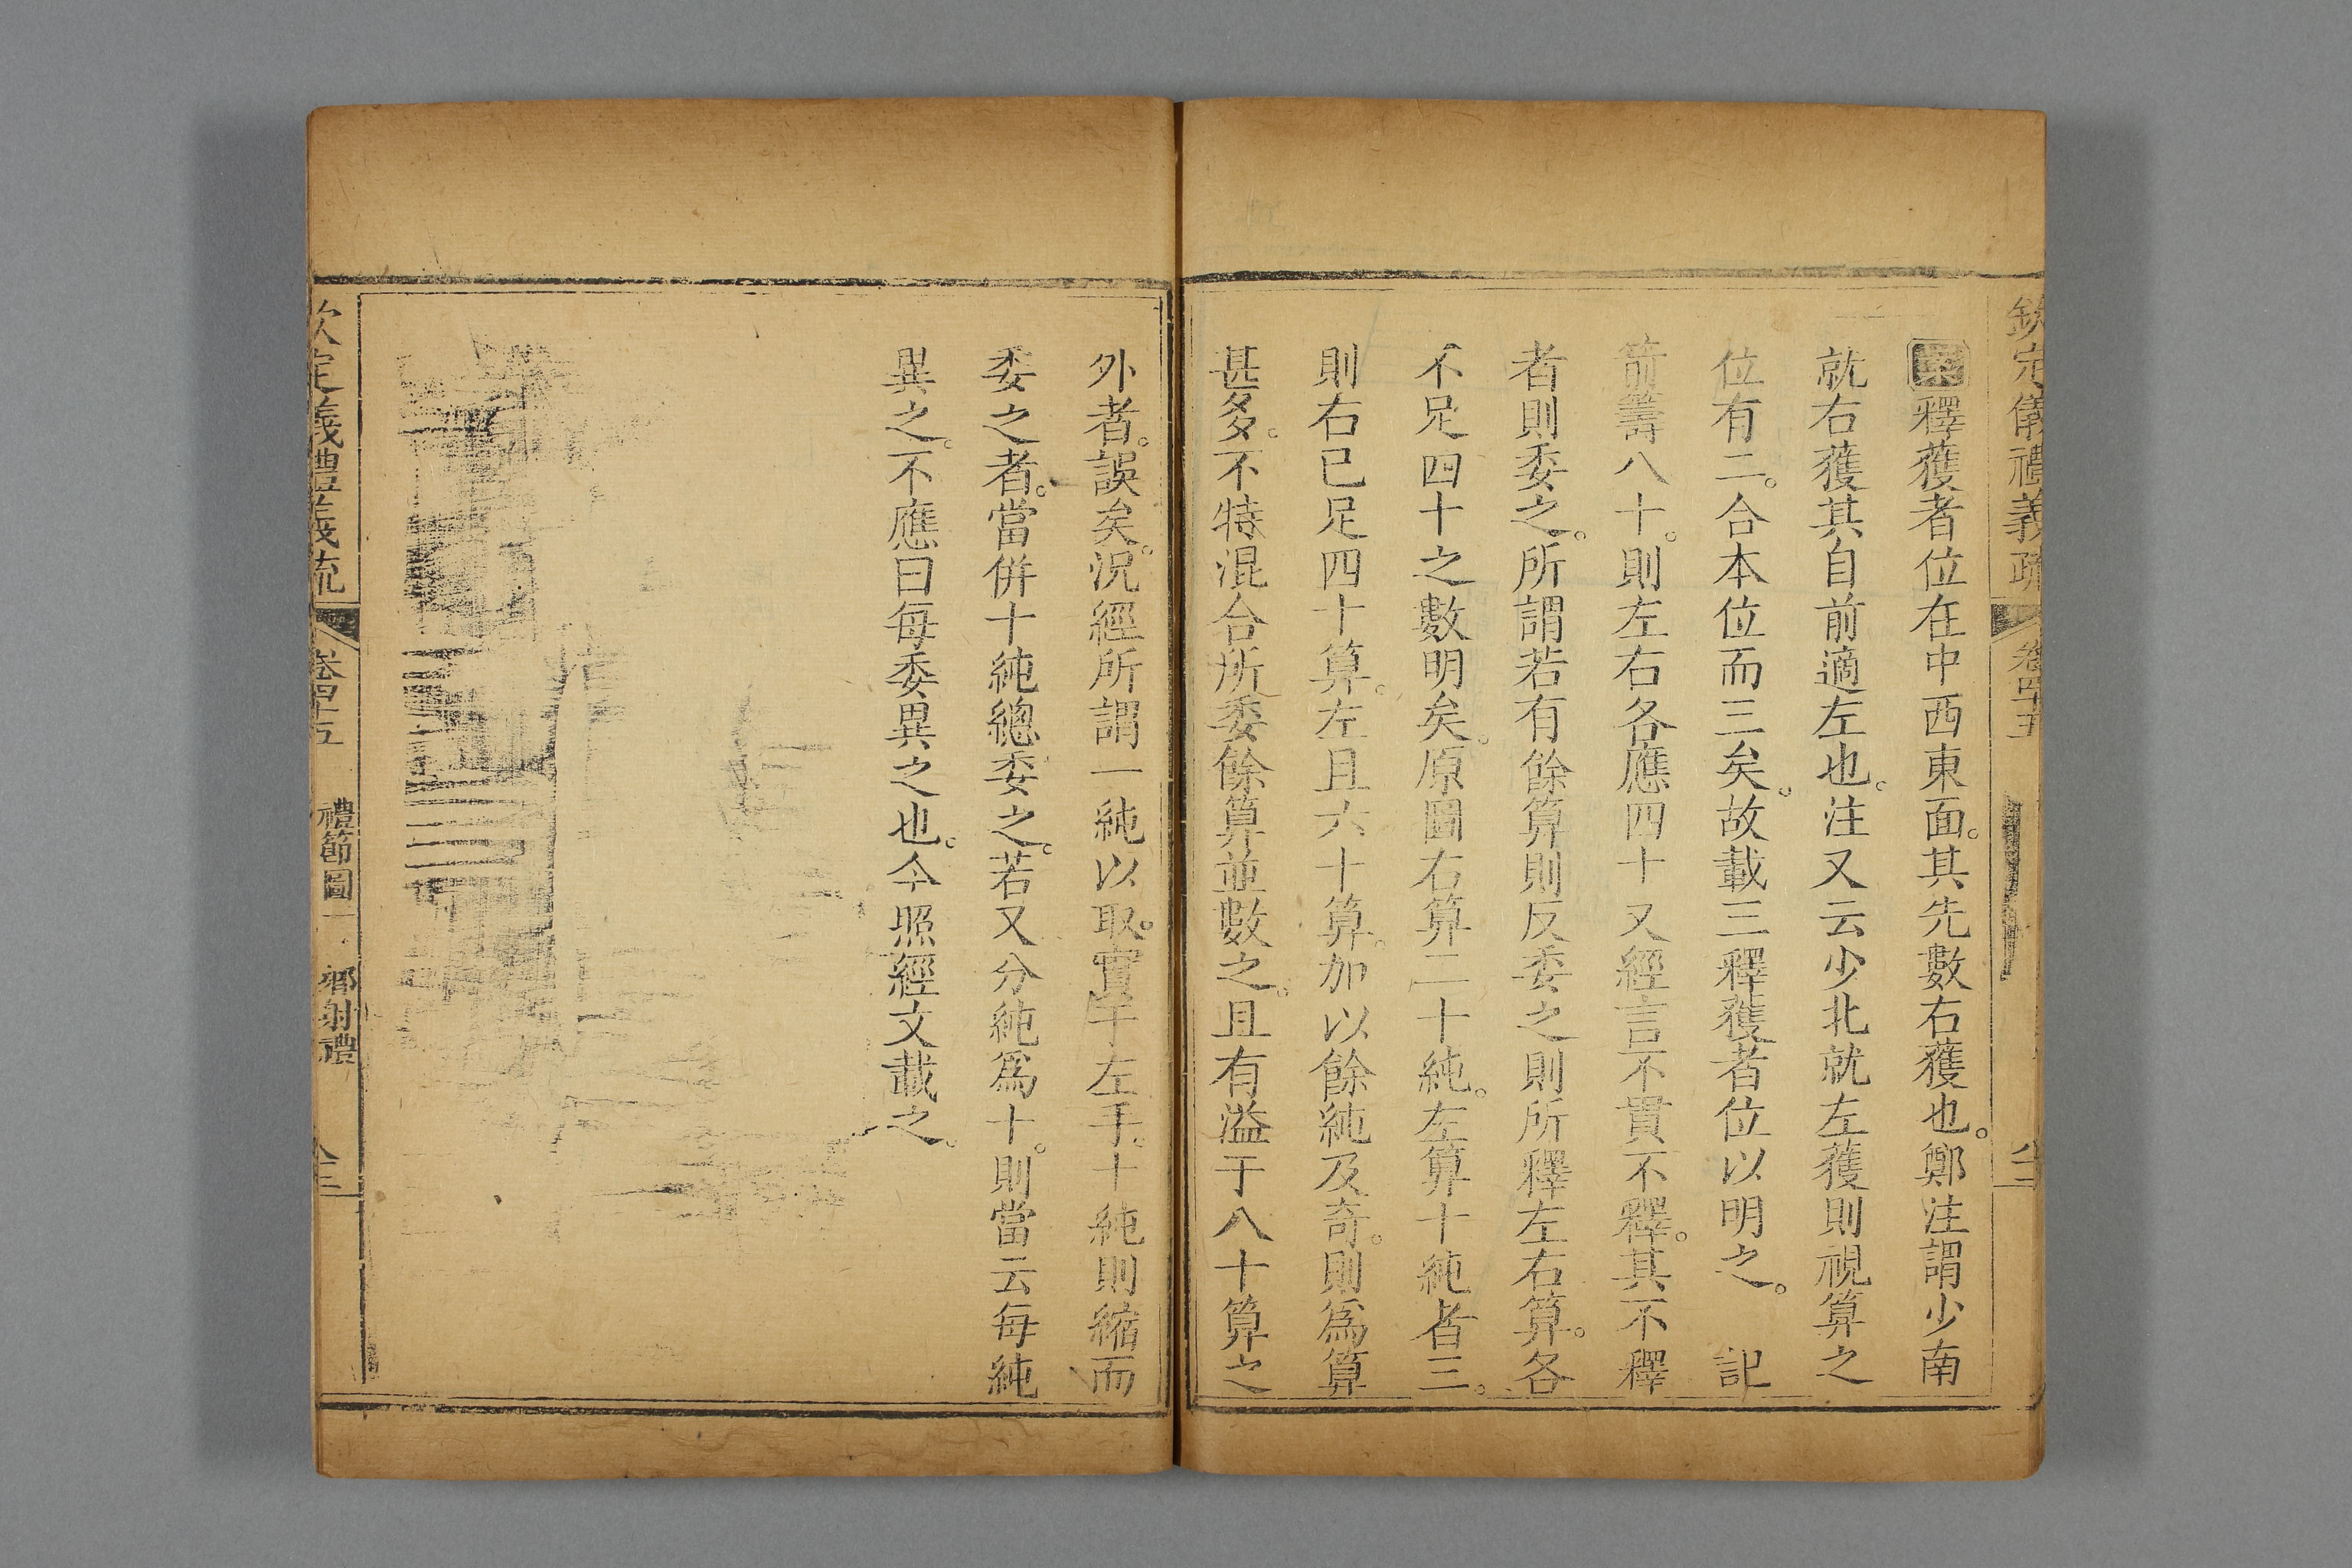 欽定儀禮義疏 卷四十五
案釋獲者位在中西東面。其先數右獲也。鄭注謂少南
就右獲其自前適左也。注又云少北就左獲則視算之
位有二。合本位而三矣。故載三釋獲者位以明之。 記
箭籌八十。則左右各應四十又經言不貫不釋。其不釋
者則委之。所謂若有餘算則反委之則所釋左右算。各
不足四十之數明矣。原圖右算二十純。左算十純者三。
則右已足四十算。左且六十算。加以餘純及奇。則為算
甚多。不特混合所委餘算並數之。且有溢于八十算之
外者。誤矣。況經所謂一純以取。實于左手。十純則縮而
委之者。當併十純總委之。若又分純為十。則當云每純
異之。不應曰每委異之也。今照經文載之。
欽定義禮義疏 卷四十五 禮節圖一 鄉射禮